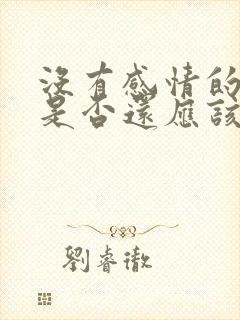 沒有感情的
是否還應該
劉睿徹